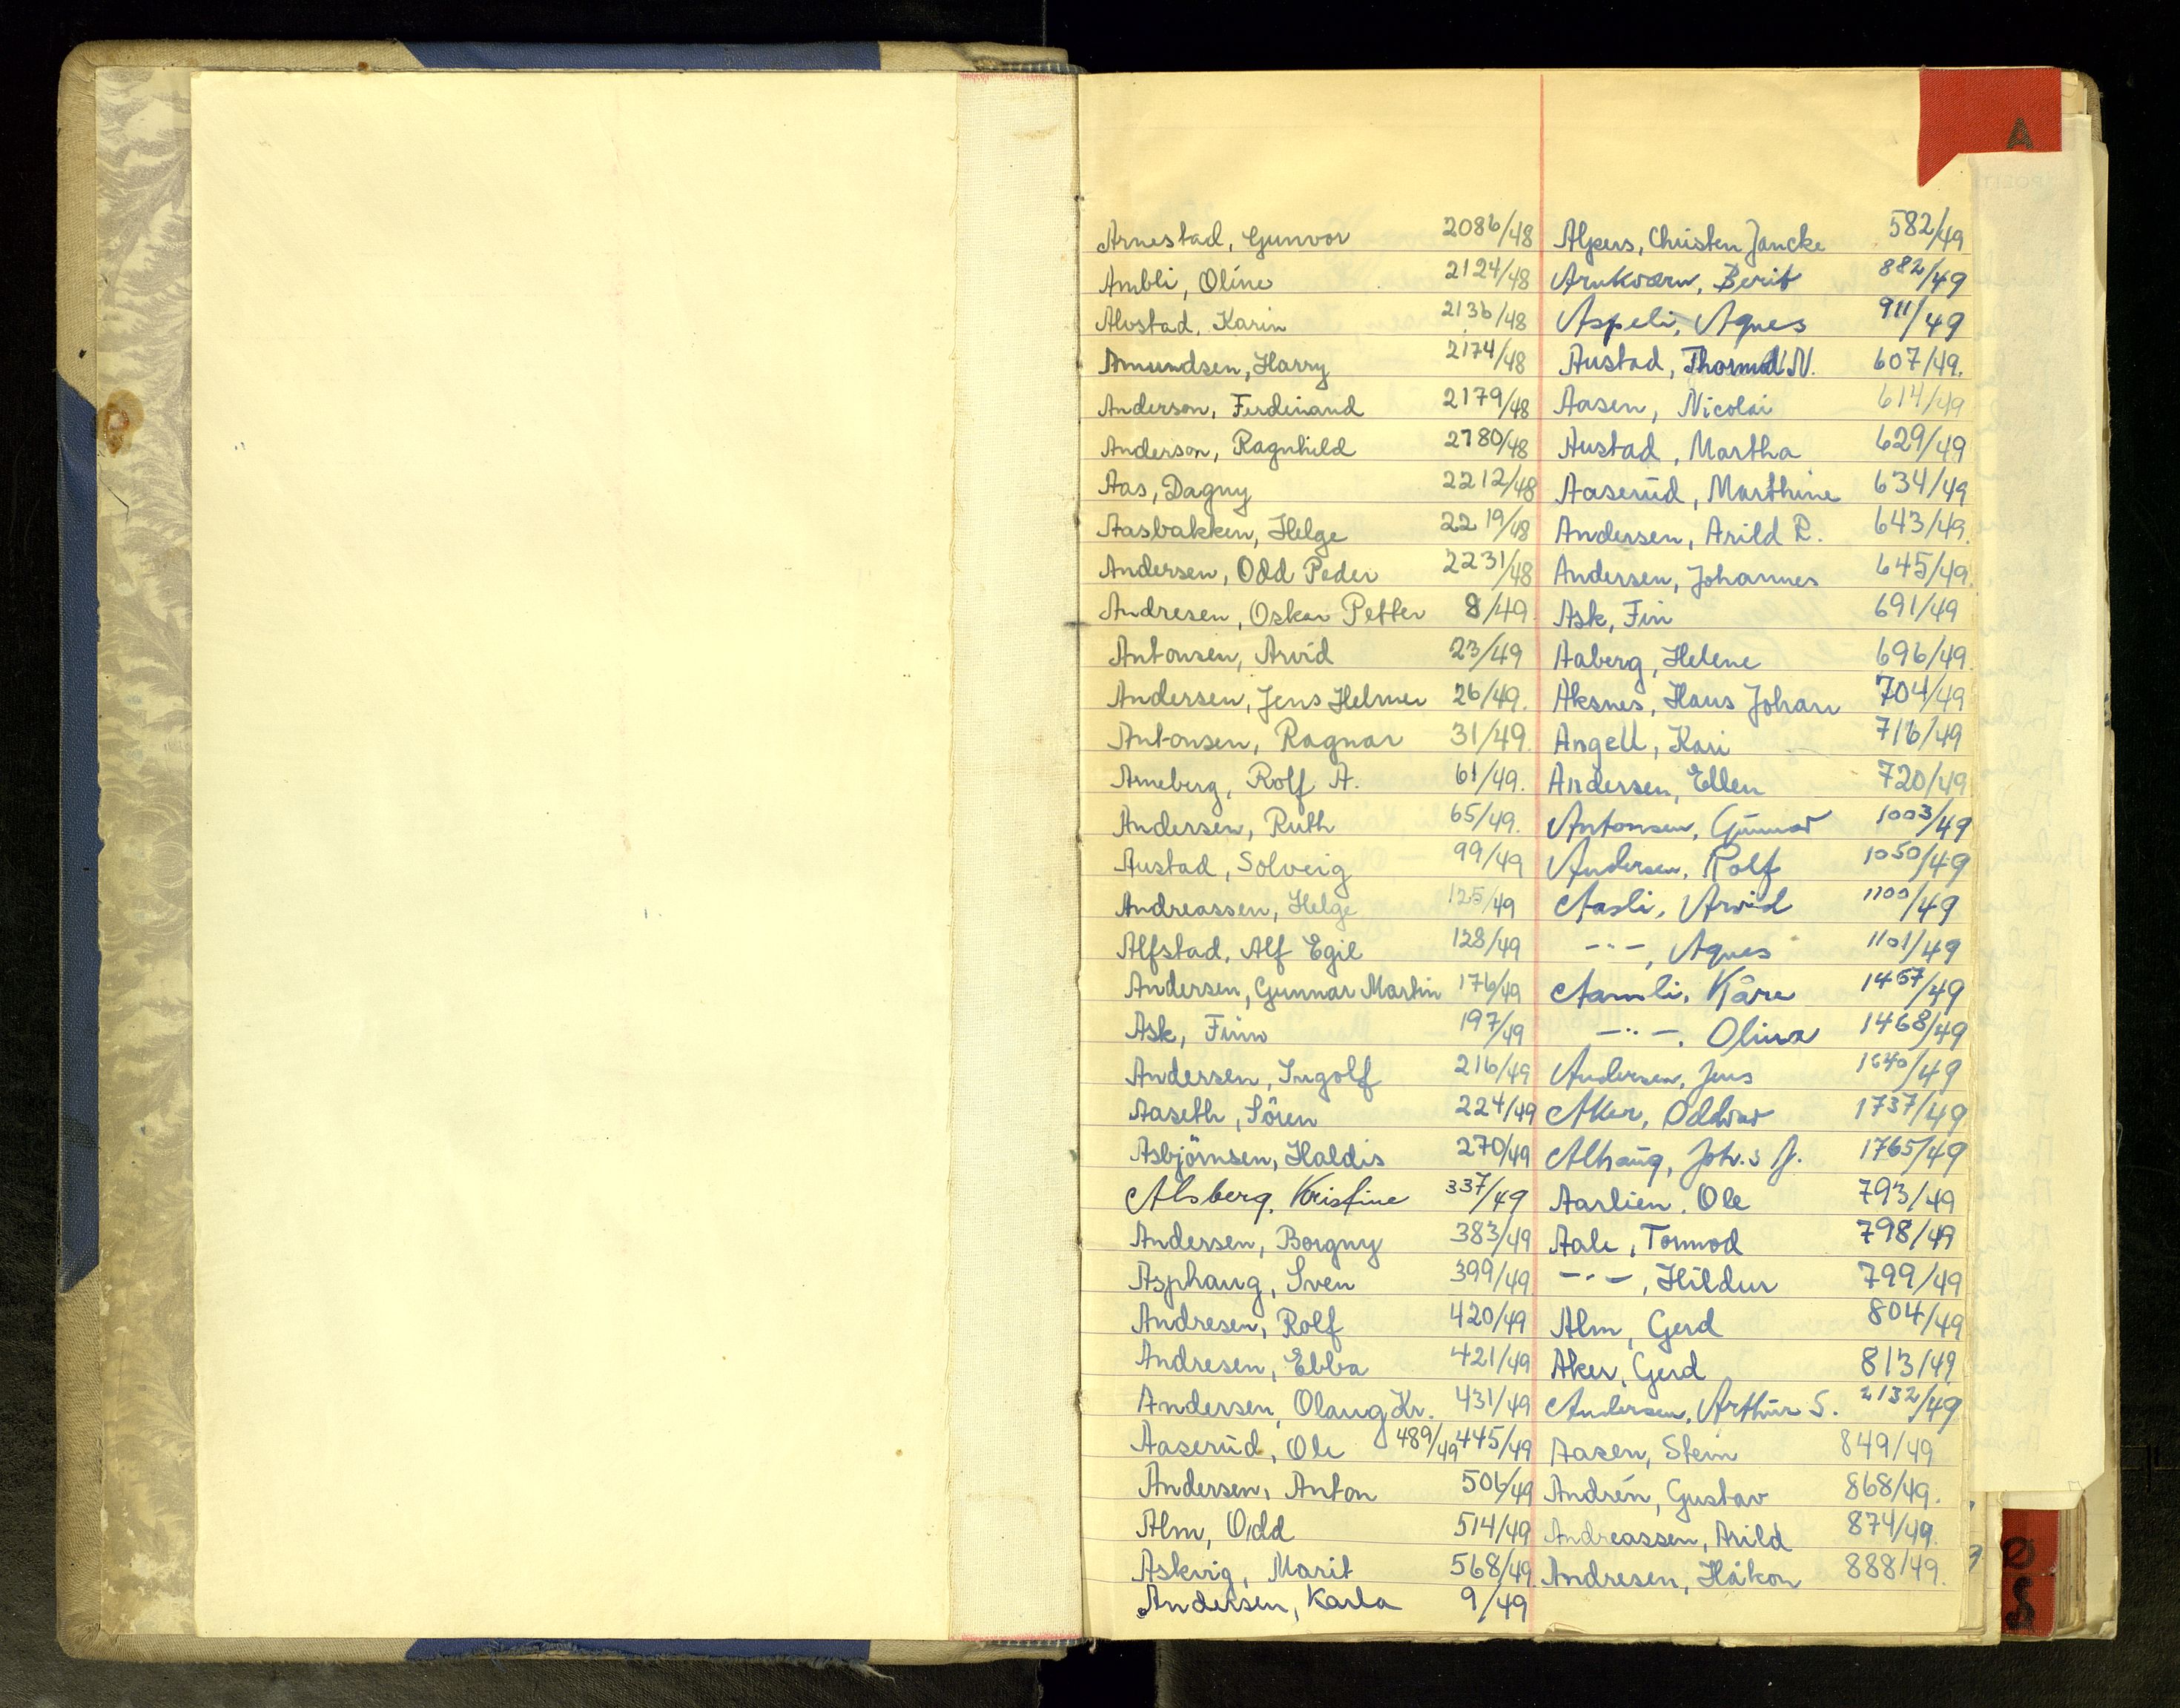 A
Arnestad, Gunvor 2086/48
Ambli, Oline 2124/48
Alvstad, Karin 2136/48
Amundsen, Harry 2174/48
Anderson, Ferdinand 2179/48
Anderson, Ragnhild 2180/48
Aas, Dagny 2212/48
Aasbakken, Helge 2219/48
Andersen, Odd Peder 2231/48
Andresen, Oskar Petter 8/49
Antonsen, Arvid 23/49
Andersen, Jens Helmer 26/49.
Antonsen, Ragnar 31/49.
Arneberg, Rolf A. 61/49.
Andersen, Ruth 65/49.
Austad, Solveig 99/49
Andreassen, Helge 125/49
Alfstad, Alf Egil 128/49
Andersen, Gunnar Martin 176/49
Ask, Finn 197/49
Andersen, Ingolf 216/49
Aaseth, Sören 224/49
Asbjörnsen, Haldis 270/49
Alsberg, Kristine 337/49
Andersen, Borgny 383/49
Asphaug, Sven 399/49
Andresen, Rolf 420/49
Andresen, Ebba 421/49
Andersen, Olaug Kr. 431/49
Aaserud, Ole 489/49 445/49
Andersen, Anton 506/49
Alm, Odd 514/49
Askvig, Marit 568/49
Andersen, Karla 9/49
Christen Jancke 582/49
Arnkværn, Berit 882/49
Aspeli, Agnes 911/49
Austad, Thormod N. 607/49.
Aasen, Nicolai 614/49
Austad, Martha 629/49
Aaserud, Marthine 634/49
Andersen, Arild R. 643/49.
Andersen, Johannes 645/49.
Ask, Finn 691/49
Aaberg, Helene 696/49.
Aksnes, Hans Johan 704/49
Angell, Kari 716/49
Andersen, Ellen 720/49
Antonsen, Gunnar 1003/49
Andersen, Rolf 1050/49
Aasli, Arvid 1100/49
-"-, Agnes 1101/49
Aamli, Kåre 1467/49
-"-, Olina 1468/49
Andersen, Jens 1640/49
Aker, Oddvar 1737/49
Alhaug, Joh.s 1765/49
Aarlien, Ole 793/49
Aale, Tormod 798/49
-"-, Hildur 799/49
Alm, Gerd 804/49
Aker, Gerd 813/49
Andersen, Arthur S. 2132/49
Aasen, Stein 849/49
Andrén, Gustav 868/49.
Andreassen, Arild 874/49.
Andresen, Håkon 888/49.
Ø